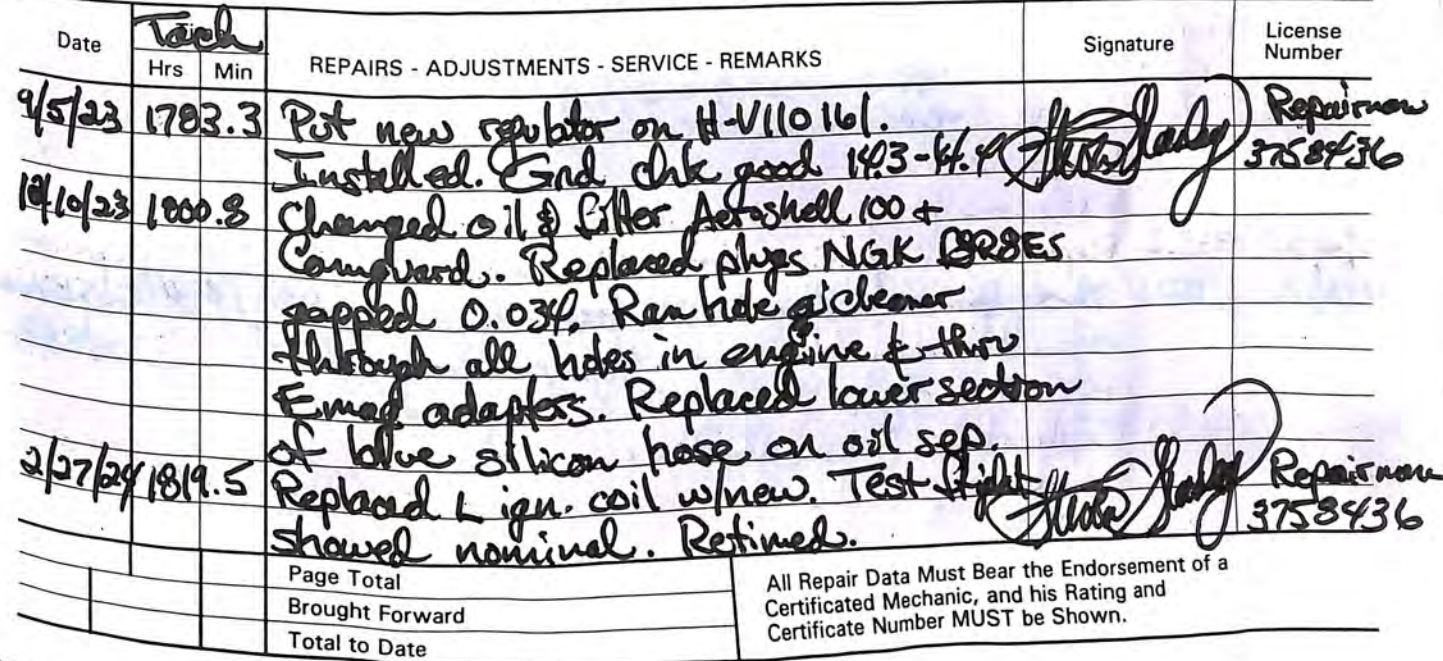 Date Tach REPAIRS - ADJUSTMENTS - SERVICE - REMARKS Signature License Number
Hrs Min
9/5/23 1783.3 Put new regulator on H-V110161. Repairman
Installed. Gnd chk good 14.3-14.4 3758436
10/10/23 1800.8 Changed oil & filter Aeroshell 100 +
Camguard. Replaced plugs NGK BR8ES
gapped 0.034. Ran cleaner
through all holes in engine & thru
Emag adapters. Replaced lower section
of blue silicon hose on oil sep.
2/27/24 1819.5 Replaced L ign. coil w/new. Test flight Repairman
showed nominal. Retimed. 3758436
Page Total
Brought Forward
Total to Date
All Repair Data Must Bear the Endorsement of a
Certificated Mechanic, and his Rating and
Certificate Number MUST be Shown.